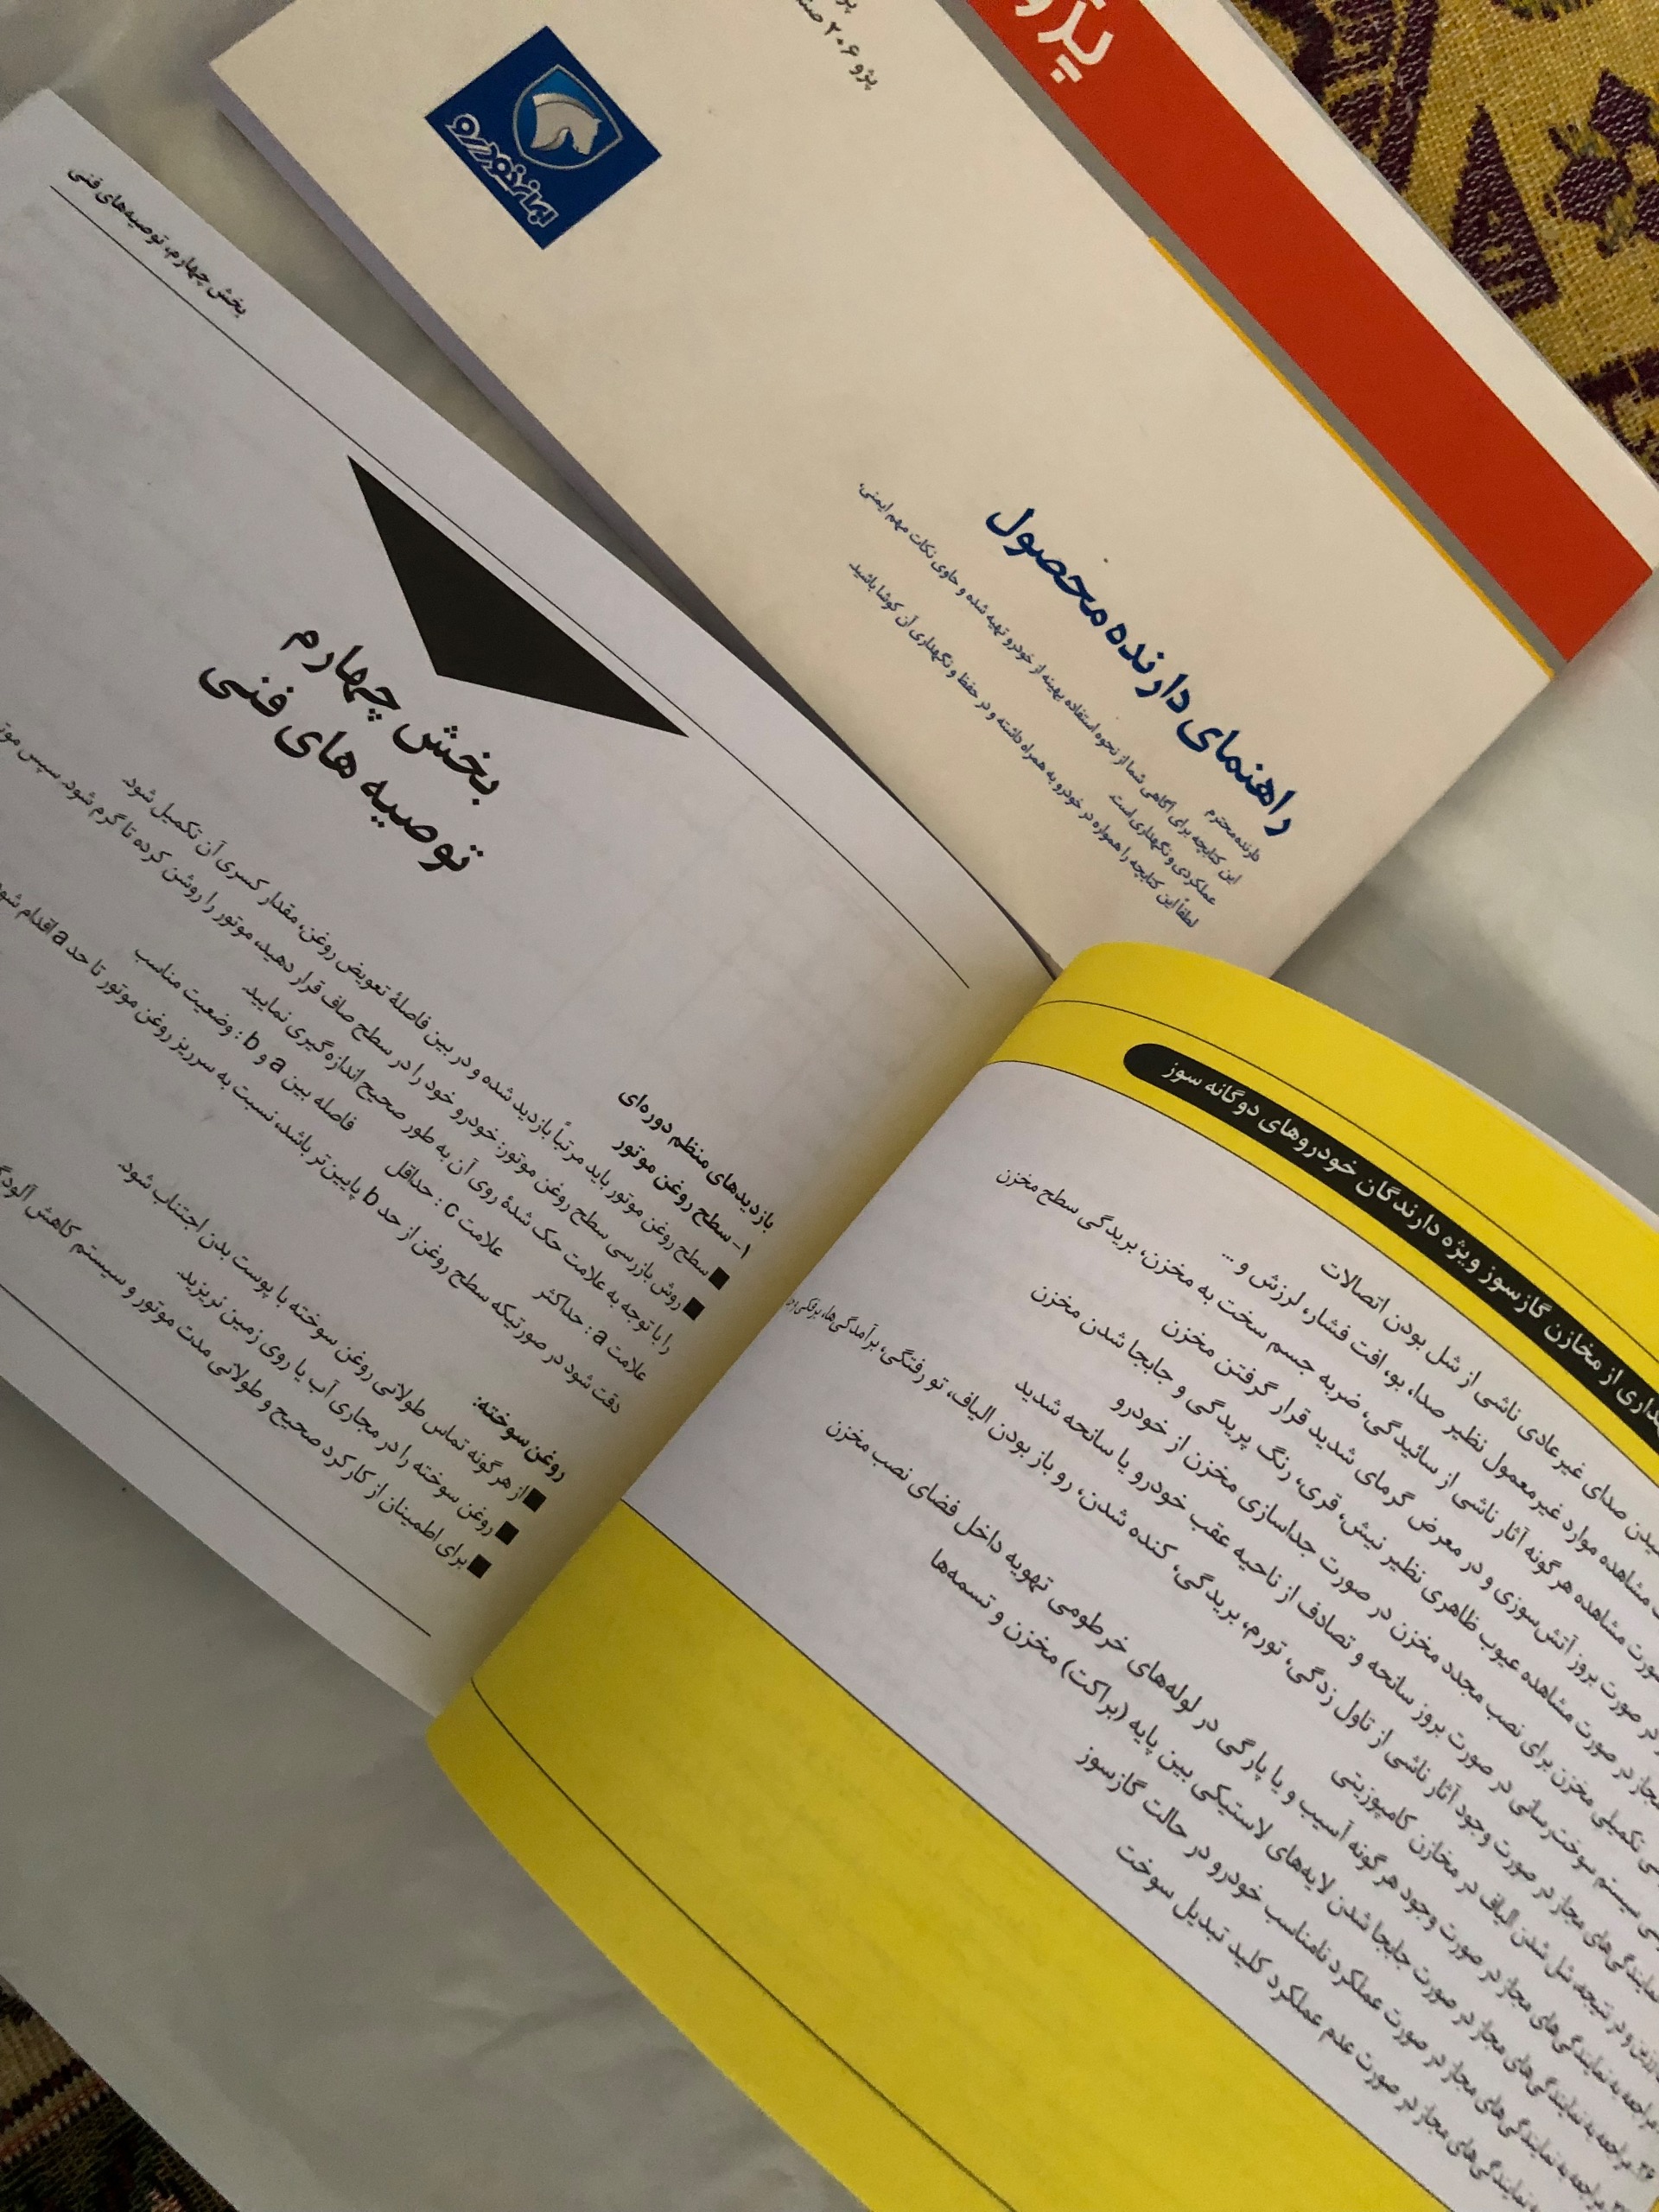 پژو
پژو ۲۰۶
ایران‌خودرو
راهنمای دارنده محصول
دارنده محترم
این کتابچه برای آگاهی شما از نحوه استفاده بهینه از خودرو تهیه شده و حاوی نکات مهم ایمنی،
عملکردی و نگهداری است.
لطفاً این کتابچه را همواره در خودرو به همراه داشته و در حفظ و نگهداری آن کوشا باشید.
بخش چهارم، توصیه‌های فنی
بخش چهارم
توصیه های فنی
بازدیدهای منظم دوره‌ای
۱- سطح روغن موتور
■ سطح روغن موتور باید مرتباً بازدید شده و در بین فاصلهٔ تعویض روغن، مقدار کسری آن تکمیل شود.
■ روش بازرسی سطح روغن موتور: خودرو خود را در سطح صاف قرار دهید، موتور را روشن کرده تا گرم شود. سپس
را با توجه به علامت حک شدهٔ روی آن به طور صحیح اندازه‌گیری نمایید.
علامت a : حداکثر علامت c : حداقل فاصله بین a و b : وضعیت مناسب
دقت شود در صورتیکه سطح روغن از حد b پایین‌تر باشد، نسبت به سرریز روغن موتور تا حد a اقدام شود.
روغن سوخته:
■ از هر گونه تماس طولانی روغن سوخته با پوست بدن اجتناب شود.
■ روغن سوخته را در مجاری آب یا روی زمین نریزید.
■ برای اطمینان از کارکرد صحیح و طولانی مدت موتور و سیستم کاهش
از مخازن گاز سوز ویژه دارندگان خودروهای دوگانه سوز
صدای غیرعادی ناشی از شل بودن اتصالات
مشاهده موارد غیر معمول نظیر صدا، بو، افت فشار، لرزش و ...
مشاهده هر گونه آثار ناشی از سائیدگی، ضربه جسم سخت به مخزن، بریدگی سطح مخزن
در صورت بروز آتش‌سوزی و در معرض گرمای شدید قرار گرفتن مخزن
در صورت مشاهده عیوب ظاهری نظیر نیش، قری، رنگ پریدگی و جابجا شدن مخزن
تکمیلی مخزن برای نصب مجدد مخزن در صورت جداسازی مخزن از خودرو
سیستم سوخت‌رسانی در صورت بروز سانحه و تصادف از ناحیه عقب خودرو یا سانحه شدید
نمایندگی‌های مجاز در صورت وجود آثار ناشی از تاول زدگی، تورم، بریدگی، کنده شدن، رو باز بودن الیاف، تو رفتگی، برآمدگی‌ها،
و در نتیجه شل شدن الیاف در مخازن کامپوزیتی
مراجعه به نمایندگی‌های مجاز در صورت وجود هر گونه آسیب و یا پارگی در لوله‌های خرطومی تهویه داخل فضای نصب مخزن
مراجعه به نمایندگی‌های مجاز در صورت جابجا شدن لایه‌های لاستیکی بین پایه (براکت) مخزن و تسمه‌ها
مراجعه به نمایندگی‌های مجاز در صورت عملکرد نامناسب خودرو در حالت گازسوز
نمایندگی‌های مجاز در صورت عدم عملکرد کلید تبدیل سوخت